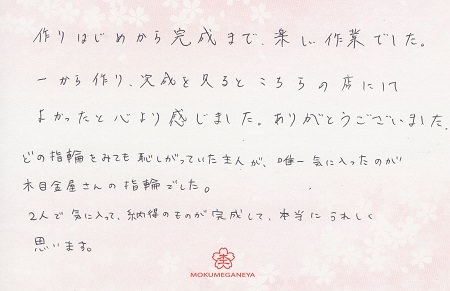 作りはじめから完成まで、楽しい作業でした。
一から作り、完成を見ると こちらの店にして
よかったと心より感じました。ありがとうございました。
どの指輪をみても恥しがっていた主人が、唯一気に入ったのが
木目金屋さんの指輪でした。
2人で気に入って、納得のものが完成して、本当にうれしく
思います。
MOKUMEGANEYA